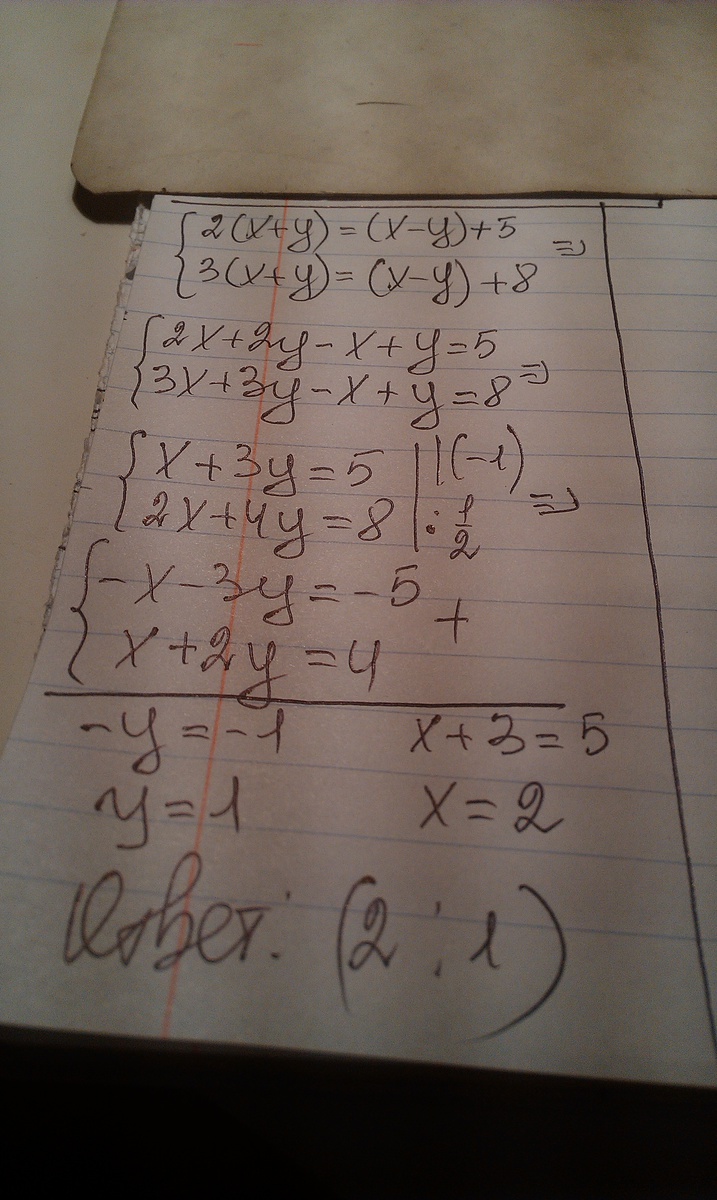 {2(x+y)=(x-y)+5
{3(x+y)=(x-y)+8 =>
{2x+2y-x+y=5
{3x+3y-x+y=8 =>
{x+3y=5 | |(-1)
{2x+4y=8 | :1/2 =>
{-x-3y=-5
{x+2y=4 +
-y=-1 x+3=5
y=1 x=2
Ответ: (2;1)